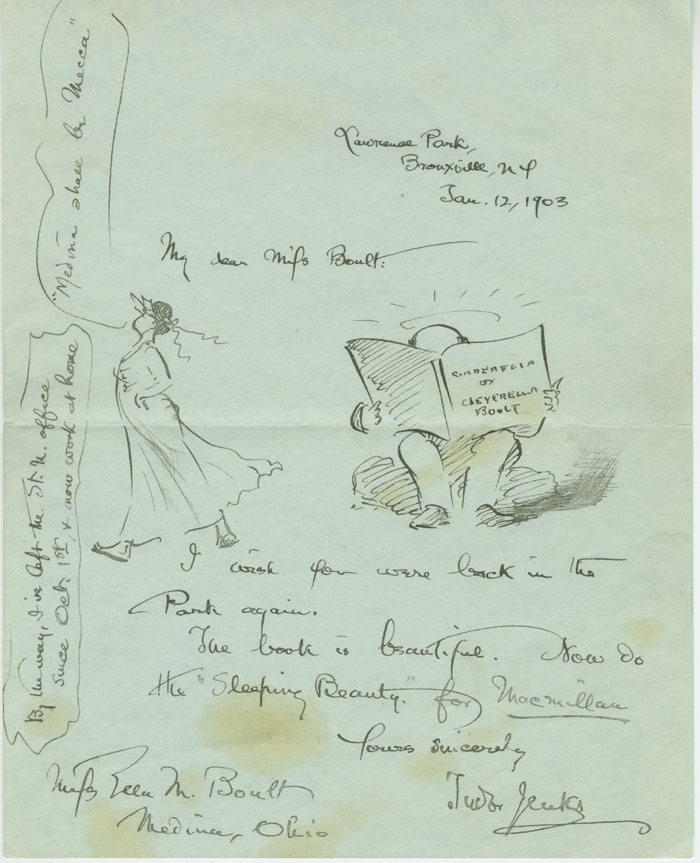 Lawrence Park,
Bronxville, N Y
Jan. 12, 1903
My dear Miss Boult:
"Medina shall be Mecca"
CINDERELLA
BY
CLEVERELLA
BOULT
By the way, I've left the St. N. office
since Oct. 1st, & now work at home
I wish you were back in the
Park again.
The book is beautiful. Now do
the "Sleeping Beauty." for Macmillan
Yours sincerely
Tudor Jenks
Miss Ella M. Boult
Medina, Ohio